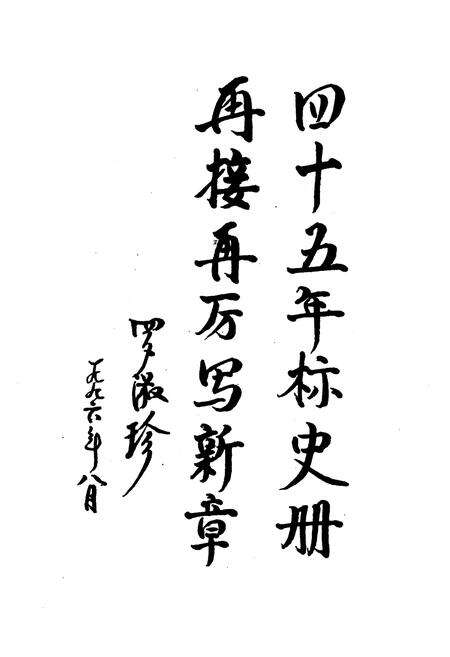 四十五年标史册
再接再厉写新章
罗淑珍
一九九六年八月